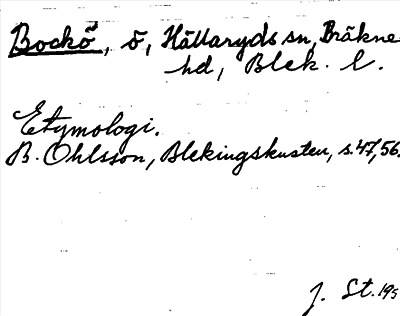 Bockö, ö, Hällaryds sn, Bräkne
hd, Blek. l.
Etymologi.
B. Ohlsson, Blekingskusten, s. 47, 56.
J. St. 195